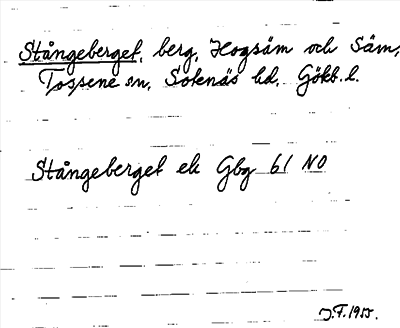 Stångeberget, berg, Hogsäm och Säm,
Tossene sn, Sotenäs hd, Gökb. l.
Stångeberget ek Gbg 61 NO
J.F. 1955.